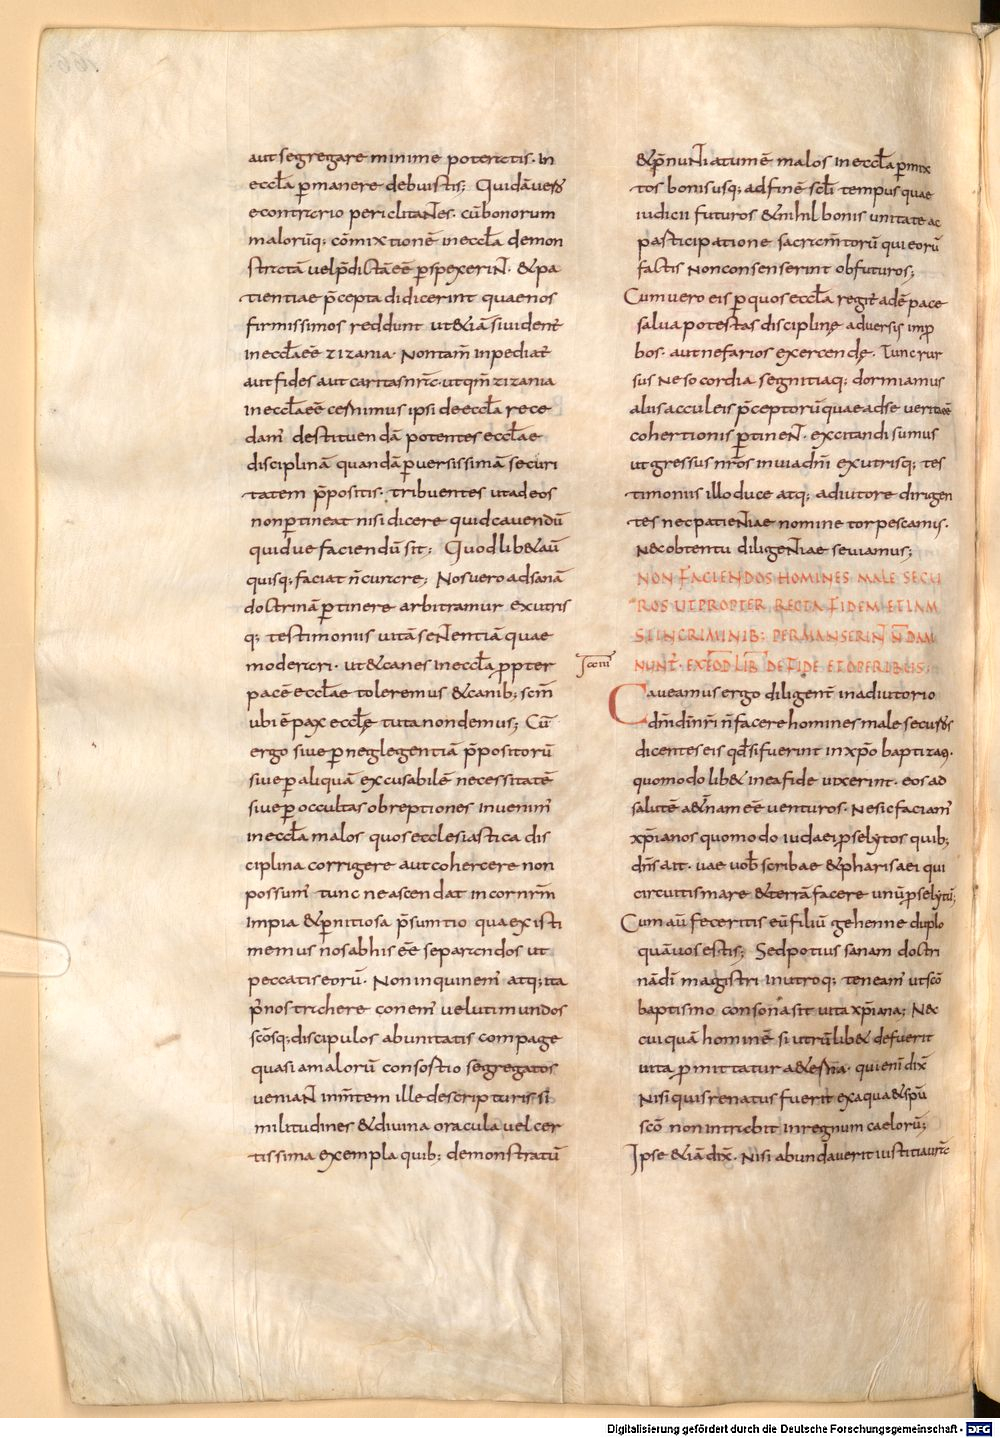 aut segregare minime poteratis. In
eccła ꝑmanere debuistis; Quidā ūero
econtrario periclitantes. cū bonorum
malorūq; cōmixtionē in eccła demon
stratā uel p̄dictā eē ꝑspexerint. & pa
tientiae p̄cepta didicerint quae nos
firmissimos reddunt ut &iā si uident̄
in eccła eē zizania. Non tam̄ inpediat̄
aut fides aut caritas nr̄a. ut qm̄ zizania
in eccła eē cernimus ipsi de eccła rece
dam̄ destituendā potentes eccłae
disciplinā quandā ꝑuersissimā securi
tatem p̄positis. tribuentes ut ad eos
non ꝑtineat nisi dicere quid cauendū
quidue faciendū sit; Quodlib& aū
quisq; faciat n̄ curare; Nos uero ad sanā
doctrinā ꝑtinere arbitramur ex utris
q; testimoniis uitā sententiā quae
moderari. ut & canes in eccła ꝓpter
pacē eccłae toleremus & canib; scm̄
ubi ē pax eccłę tuta non demus; Cū
ergo siue ꝑ neglegentiā p̄positorū
siue ꝑ aliquā excusabilē necessitatē
siue ꝑ occultas obreptiones inuenim̄
in eccła malos quos ecclesiastica dis
ciplina corrigere aut cohercere non
possum̄ tunc ne ascendat in cor nrm̄
impia & ꝑnitiosa p̄sumtio qua existi
memus nos ab his eē separandos ut
peccatis eorū. Non inquinem̄ atq; ita
p̄ nos trahere conem̄ uelut mundos
scōsq; discipulos ab unitatis compage
quasi a malorū consortio segregatos
ueniant in m̄tem ille de scripturis si
militudines & diuina oracula uel cer
tissima exempla quib; demonstratū
& p̄nuntiatum ē malos in eccła ꝑmix
tos bonis usq; ad finē scłi tempus quae
iudicii futuros & nihil bonis unitate ac
participatione sacram̄torū qui eorū
factis non consenserint obfuturos;
Cum uero eis ꝑ quos eccła regit̄ adē pace
salua potestas disciplinę aduersis imꝓ
bos. aut nefarios exercendę. Tunc rur
sus ne socordia segnitiaq; dormiamus
aliis acculeis p̄ceptorū quae ad seueritatē
cohertionis ꝑtinent. excitandi sumus
ut gressus nr̄os in uia dn̄i ex utrisq; tes
timoniis illo duce atq; adiutore dirigen
tes nec patientiae nomine torpescamus.
Nec obtentu diligentiae seuiamus;
NON FACIENDOS HOMINES MALE SECU
ROS UT PROPTER RECTA FIDEM ETIAM
SI IN CRIMINIB; PERMANSERINT N̄ DAM
NUNT̄. EX EOD̄ LIB̄ DE FIDE ET OPERIBUS;
Caueamus ergo diligent̄ in adiutorio
dn̄i dī nr̄i n̄ facere homines male securos
dicentes eis qd̄ si fuerint in xp̄o baptizati.
quomodolib& in ea fide uixerint. eos ad
salutē aet̄nam eē uenturos. Ne sic faciam̄
xp̄ianos quomodo iudaei ꝓselytos quib;
dn̄s ait. uae uob̄ scribae & pharisaei qui
circuitis mare & terrā facere unū ꝓselytū;
Cum aū feceritis eū filiū gehenne duplo
quā uos estis; Sed potius sanam doctri
nā dī magistri in utroq; teneam̄ ut scō
baptismo consona sit uita xp̄iana; Nec
cuiquā hominē si utrūlib& defuerit
uita ꝓmittatur aeterna. qui enī dix̄
Nisi quis renatus fuerit ex aqua & sp̄u
scō non intrabit in regnum caelorū;
Ipse &iā dix̄. Nisi abundauerit iustitia ur̄a
Digitalisierung gefördert durch die Deutsche Forschungsgemeinschaft - DFG